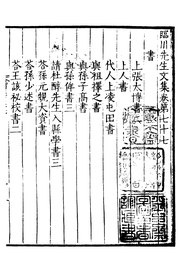 臨川先生文集卷第七十七
書
上張太博書二
上人書
代人上凌屯田書
與祖擇之書
與孫子高書
與孫侔書三
請杜醇先生入縣學書二
答孫元規大資書
答孫少述書
答王該秘校書二